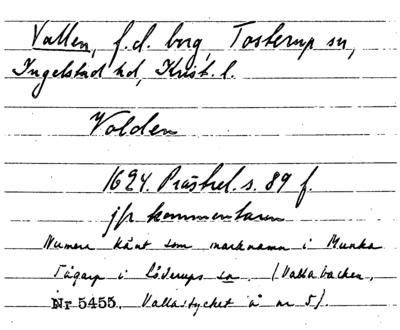 Vallen, f.d. borg, Tosterup sn,
Ingelstad hd, Krist. l.
Valden
1624. Prästrel. s. 89 f.
jfr kommentaren
Numera känt som marknamn i Munka
Tågarp i Löderups sn. (Vallabacken,
Nr 5455. Vallastycket å nr 5).